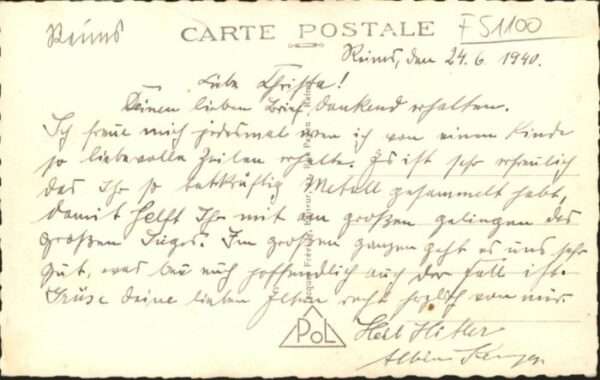 Reims
CARTE POSTALE
FS1100
Reims, den 24.6.1940.
Liebe Christa!
Deinen lieben Brief dankend erhalten.
Ich freue mich jedesmal wen ich von einem Kinde
so liebevolle Zeilen erhalte. Es ist sehr erfreulich
das Ihr so tatkräftig Metall gesammelt habt,
damit helft Ihr mit am großen gelingen des
großen Sieges. Im großen ganzen geht es uns sehr
gut, was bei euch hoffendlich auch der Fall ist.
Grüse deine lieben Eltern recht herzlich von mir.
PoL
Heil Hitler
Albin